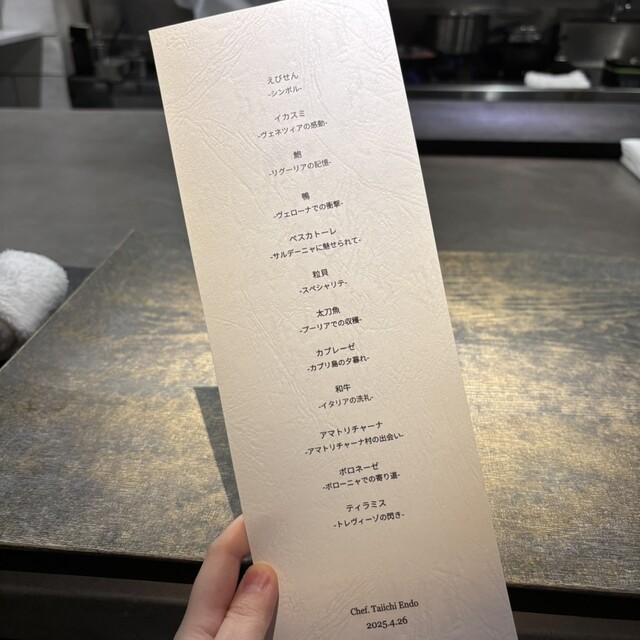 えびせん
-シンボル-
イカスミ
-ヴェネツィアの感動-
鮑
-リグーリアの記憶-
鴨
-ヴェローナでの衝撃-
ペスカトーレ
-サルデーニャに魅せられて-
粒貝
-スペシャリテ-
太刀魚
-プーリアでの収穫-
カプレーゼ
-カプリ島の夕暮れ-
和牛
-イタリアの洗礼-
アマトリチャーナ
-アマトリチャーナ村の出会い-
ボロネーゼ
-ボローニャでの寄り道-
ティラミス
-トレヴィーゾの閃き-
Chef. Taiichi Endo
2025.4.26